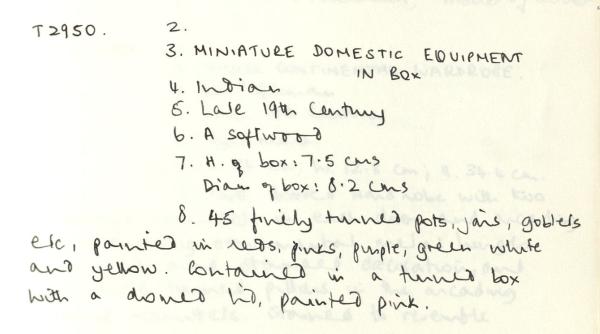 T2950. 2.
3. MINIATURE DOMESTIC EQUIPMENT
IN BOX
4. Indian
5. Late 19th Century
6. A softwood
7. H. of box: 7.5 cms
Diam of box: 8.2 cms
8. 45 finely turned pots, jars, goblets
etc, painted in reds, pinks, purple, green white
and yellow. Contained in a turned box
with a domed lid, painted pink.